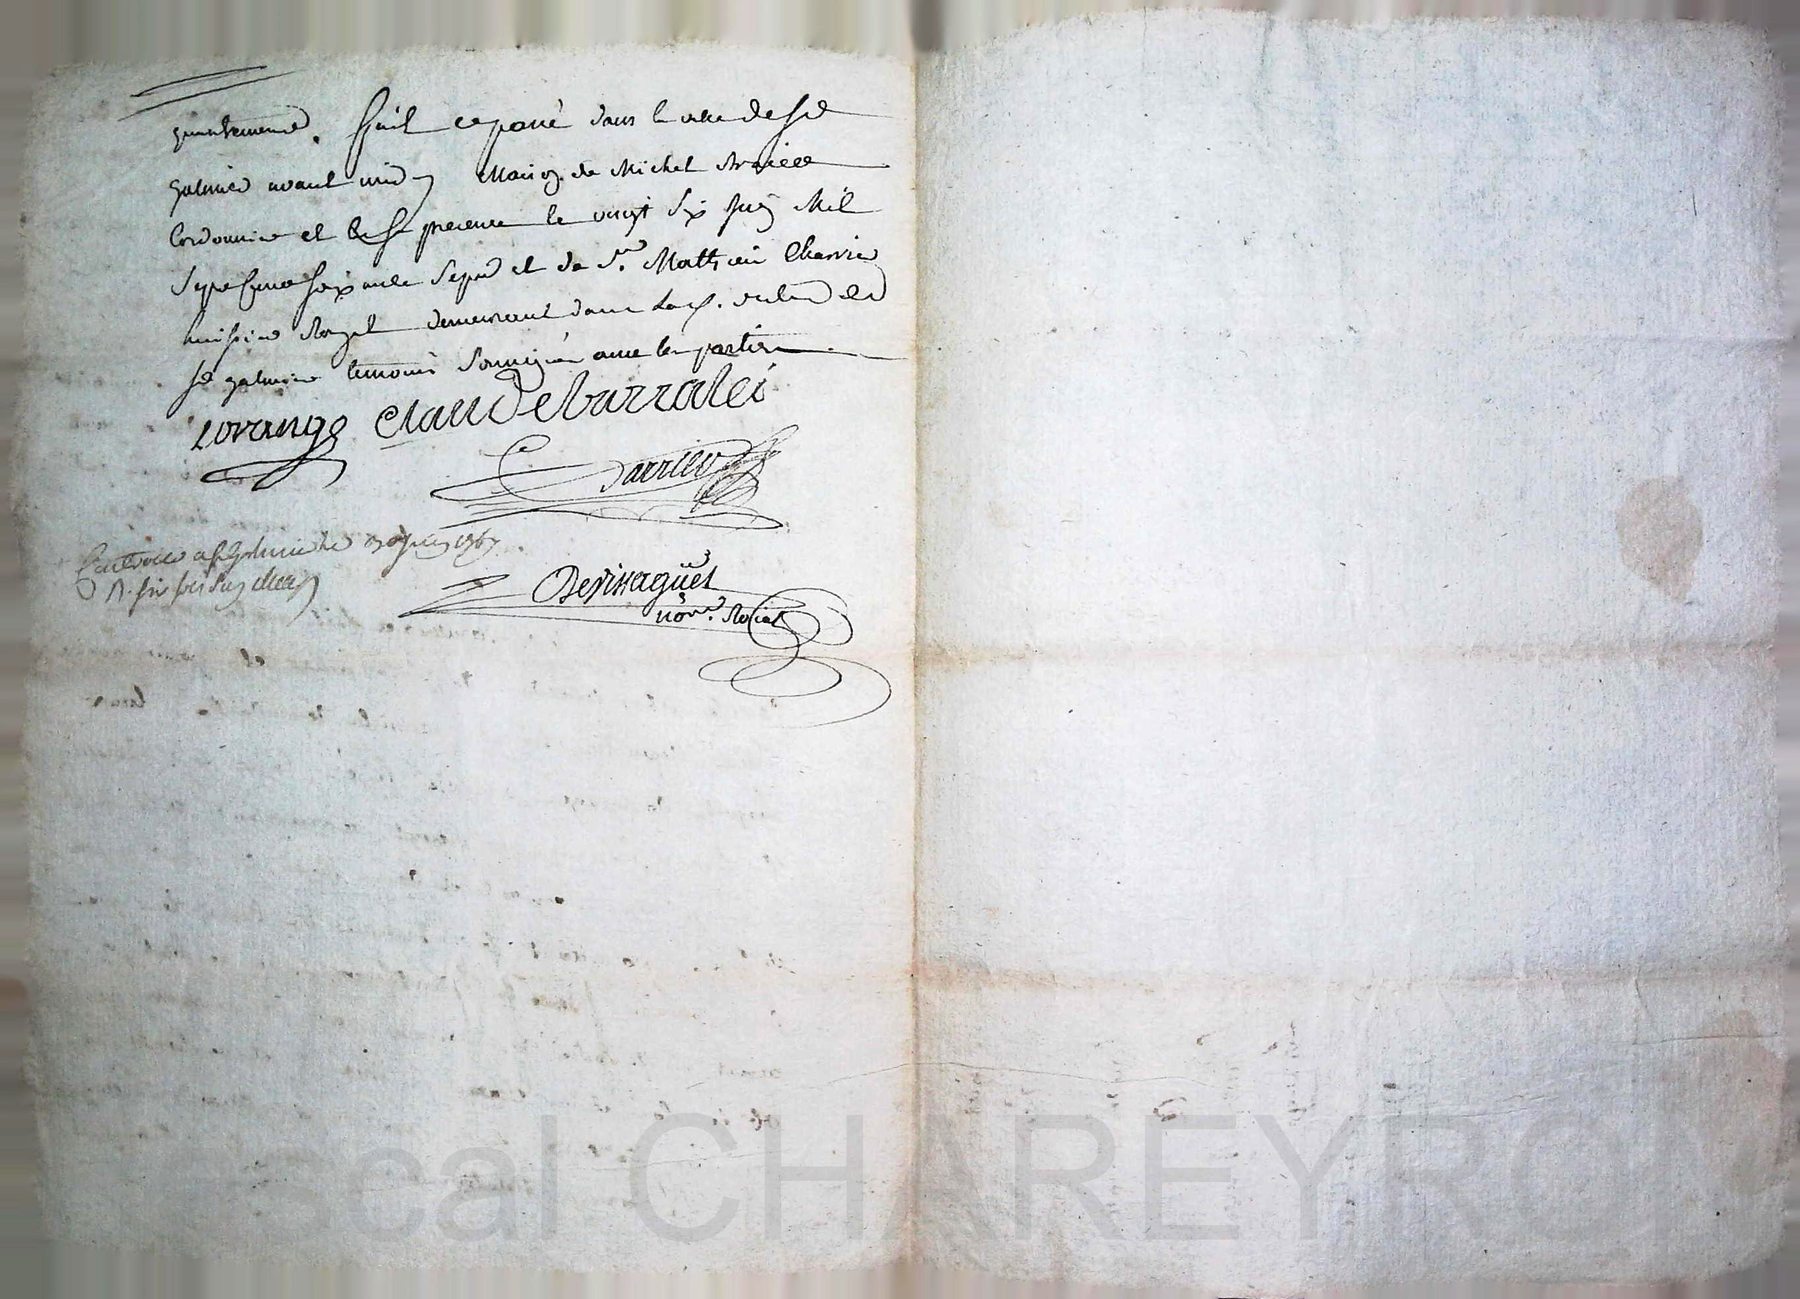 fait et passé dans la ville de St
galmier avant midy Maison de Michel
Cordonnier et en sa presence le vingt six juin Mil
Sept Cens soixante Sept et de Sr. Matthieu Charrier
huissier Royal demeurant dans lad. ville de
St galmier temoins Soussignés avec les parties
Lorange Claude barralei
Carrier
Controllé a St Galmier le juin 1767
R.
Devissaguet
nore. Roial
scal CHAREYRON